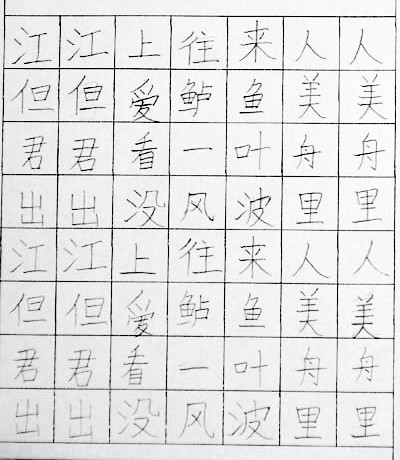 江江上往来人人
但但爱鲈鱼美美
君君看一叶舟舟
出出没风波里里
江江上往来人人
但但爱鲈鱼美美
君君看一叶舟舟
出出没风波里里